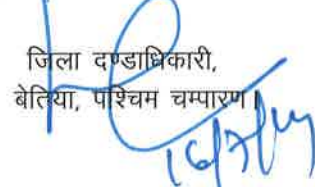 जिला दण्डाधिकारी,
बेतिया, पश्चिम चम्पारण।
16/7/14